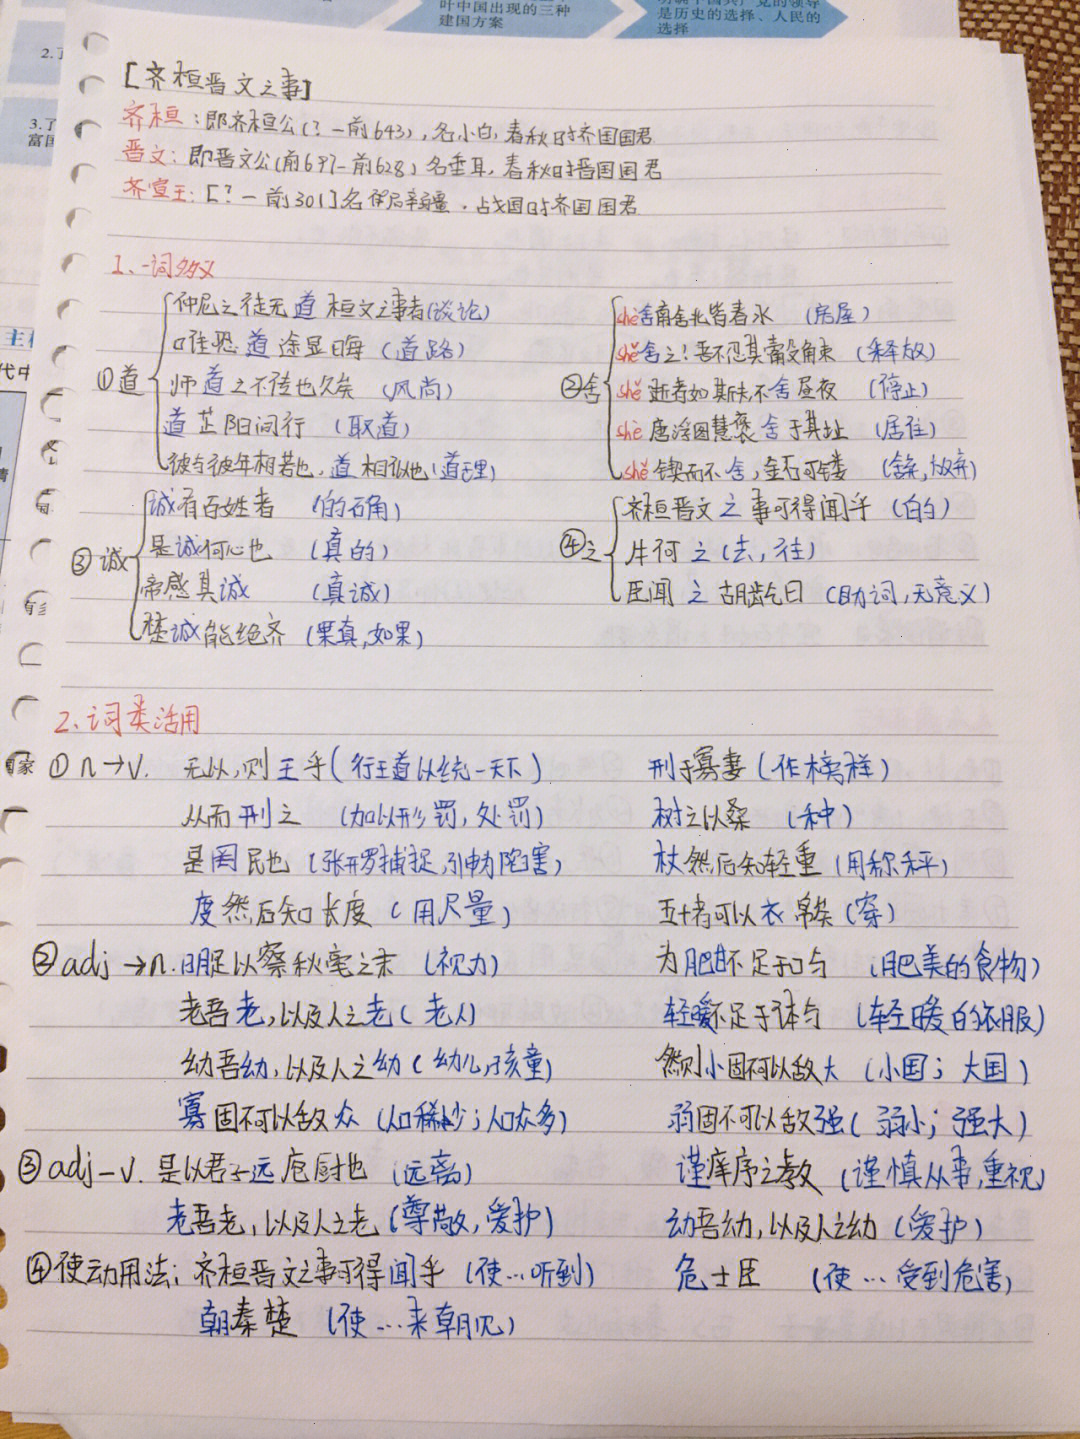 叶中国出现的三种
建国方案
是历史的选择、人民的
选择
[齐桓晋文之事]
齐桓：即齐桓公(？-前643)，名小白，春秋时齐国国君
晋文：即晋文公(前697-前628)名重耳，春秋时晋国国君
齐宣王：[？-前301]名 辟疆，战国时齐国国君
1、一词多义
①道
仲尼之徒无道桓文之事者(谈论)
道途显晦(道路)
师道之不传也久矣(风尚)
道芷阳间行(取道)
彼与彼年相若也，道相似也(道理)
②舍
shè舍南舍北皆春水(房屋)
shě舍之！吾不忍其觳觫(释放)
shě逝者如斯夫，不舍昼夜(停止)
shè唐浮图慧褒舍于其址(居住)
shě锲而不舍，金石可镂(舍弃，放弃)
③诚
诚有百姓者(的确)
是诚何心也(真的)
帝感其诚(真诚)
楚诚能绝齐(果真，如果)
④之
齐桓晋文之事可得闻乎(的)
牛何之(去，往)
臣闻之胡龁曰(助词，无意义)
2、词类活用
①n→v. 无以，则王乎(行王道以统一天下) 刑于寡妻(作榜样)
从而刑之(加以刑罚，处罚) 树之以桑(种)
是罔民也(张开罗网捕捉，引申为陷害) 权然后知轻重(用称秤)
度然后知长度(用尺量) 五十者可以衣帛矣(穿)
②adj→n.明足以察秋毫之末(视力) 为肥甘不足于口与(肥美的食物)
老吾老，以及人之老(老人) 轻暖不足于体与(轻暖的衣服)
幼吾幼，以及人之幼(幼儿，孩童) 然则小固不可以敌大(小国；大国)
寡固不可以敌众(人口稀少；人口众多) 弱固不可以敌强(弱小；强大)
③adj-v.是以君子远庖厨也(远离) 谨庠序之教(谨慎从事，重视)
老吾老，以及人之老(尊敬，爱护) 幼吾幼，以及人之幼(爱护)
④使动用法：齐桓晋文之事可得闻乎(使…听到) 危士臣(使…受到危害)
朝秦楚(使…来朝见)